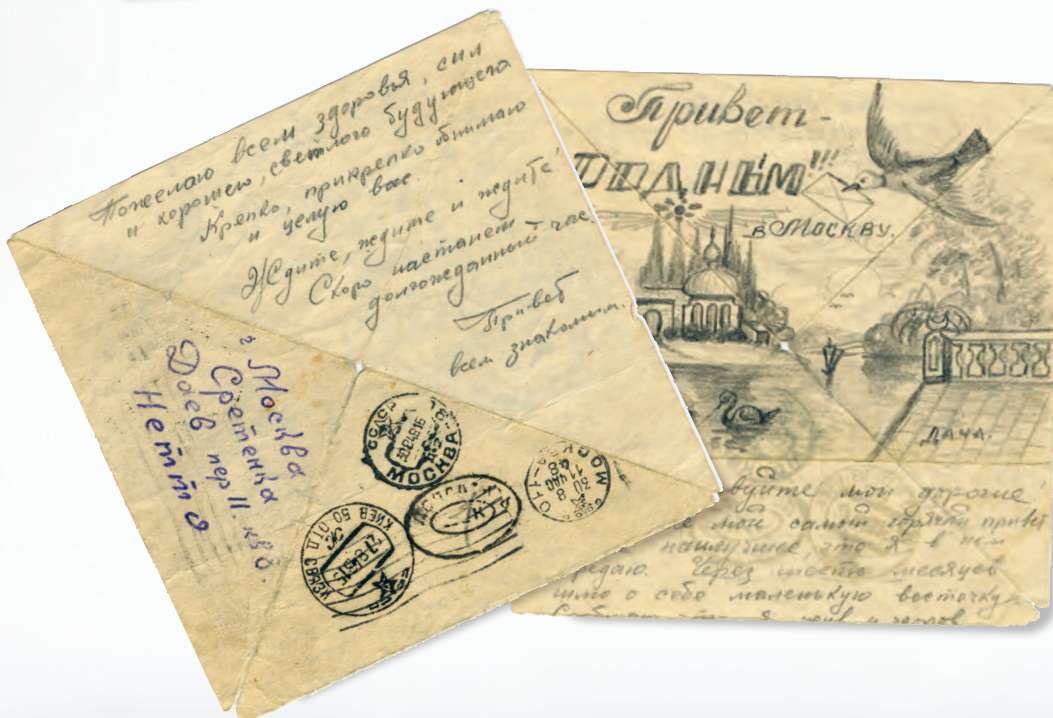 Пожелаю всем здоровья, сил
и хорошего, светлого будующего
Крепко, прикрепко обнимаю
и целую вас.
Ждите, ждите и ждите!
Скоро настанет
долгожданный час.
Привет
всем знакомым.
г Москва
Сретенка
Даев пер 11. кв 6.
Нетто
МОСКВА
КИЕВ 50-ОТД СВЯЗ
МОСКВА
Привет-
РОДНЫМ!!!
в МОСКВУ.
ДАЧА.
мои дорогие!
мой самый горячий привет
наилучшее что я в нем
Через шесть месяцев
шлю о себе маленькую весточку